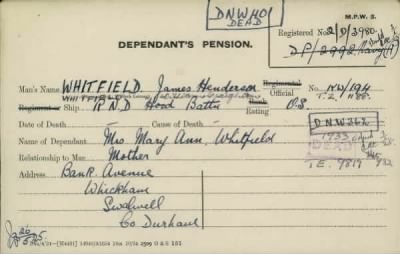 DNW401
DEAD
M.P.W. 5.
Registered No. 2/D/2980
DEPENDANT'S PENSION.
DP/2992 Navy
Man's Name WHITFIELD James Henderson Regimental Official No. KW/194
WHITFIELD
T.Z.
Regiment or Ship R.N.D Hood Battn Rank Rating O.S.
Date of Death Cause of Death
DNW262
Name of Dependant Mrs Mary Ann Whitfield
1933
DEAD
Relationship to Man Mother
T.E. 9817
Address Bank Avenue
Whickham
Swalwell
Co Durham